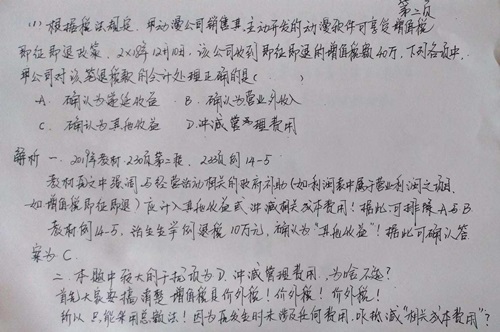 第二页
(1) 根据税法规定,甲动漫公司销售其主动开发的动漫软件可享受增值税
即征即退政策,2×18年12月10日,该公司收到即征即退的增值税额40万,下列各项中,
甲公司对该笔退税款的会计处理正确的是( )
A. 确认为递延收益 B. 确认为营业外收入
C. 确认为其他收益 D. 冲减管理费用
解析 一、2019年教材230页第二段,233页例14-5
教材原文中强调与经营活动相关的政府补助(如利润表中属于营业利润之项目
如增值税即征即退)应计入其他收益或冲减相关成本费用!据此可排除A与B
教材例14-5,活生生举例退税10万元,确认为"其他收益"!据此可确认答
案为C.
二、本题中存大的干扰该为D. 冲减管理费用,为啥不选?
首先大家要搞清楚 增值税是价外税!价外税!价外税!
所以只能采用总额法!因为在发生时未涉及任何费用,咋抵减"相关成本费用"?